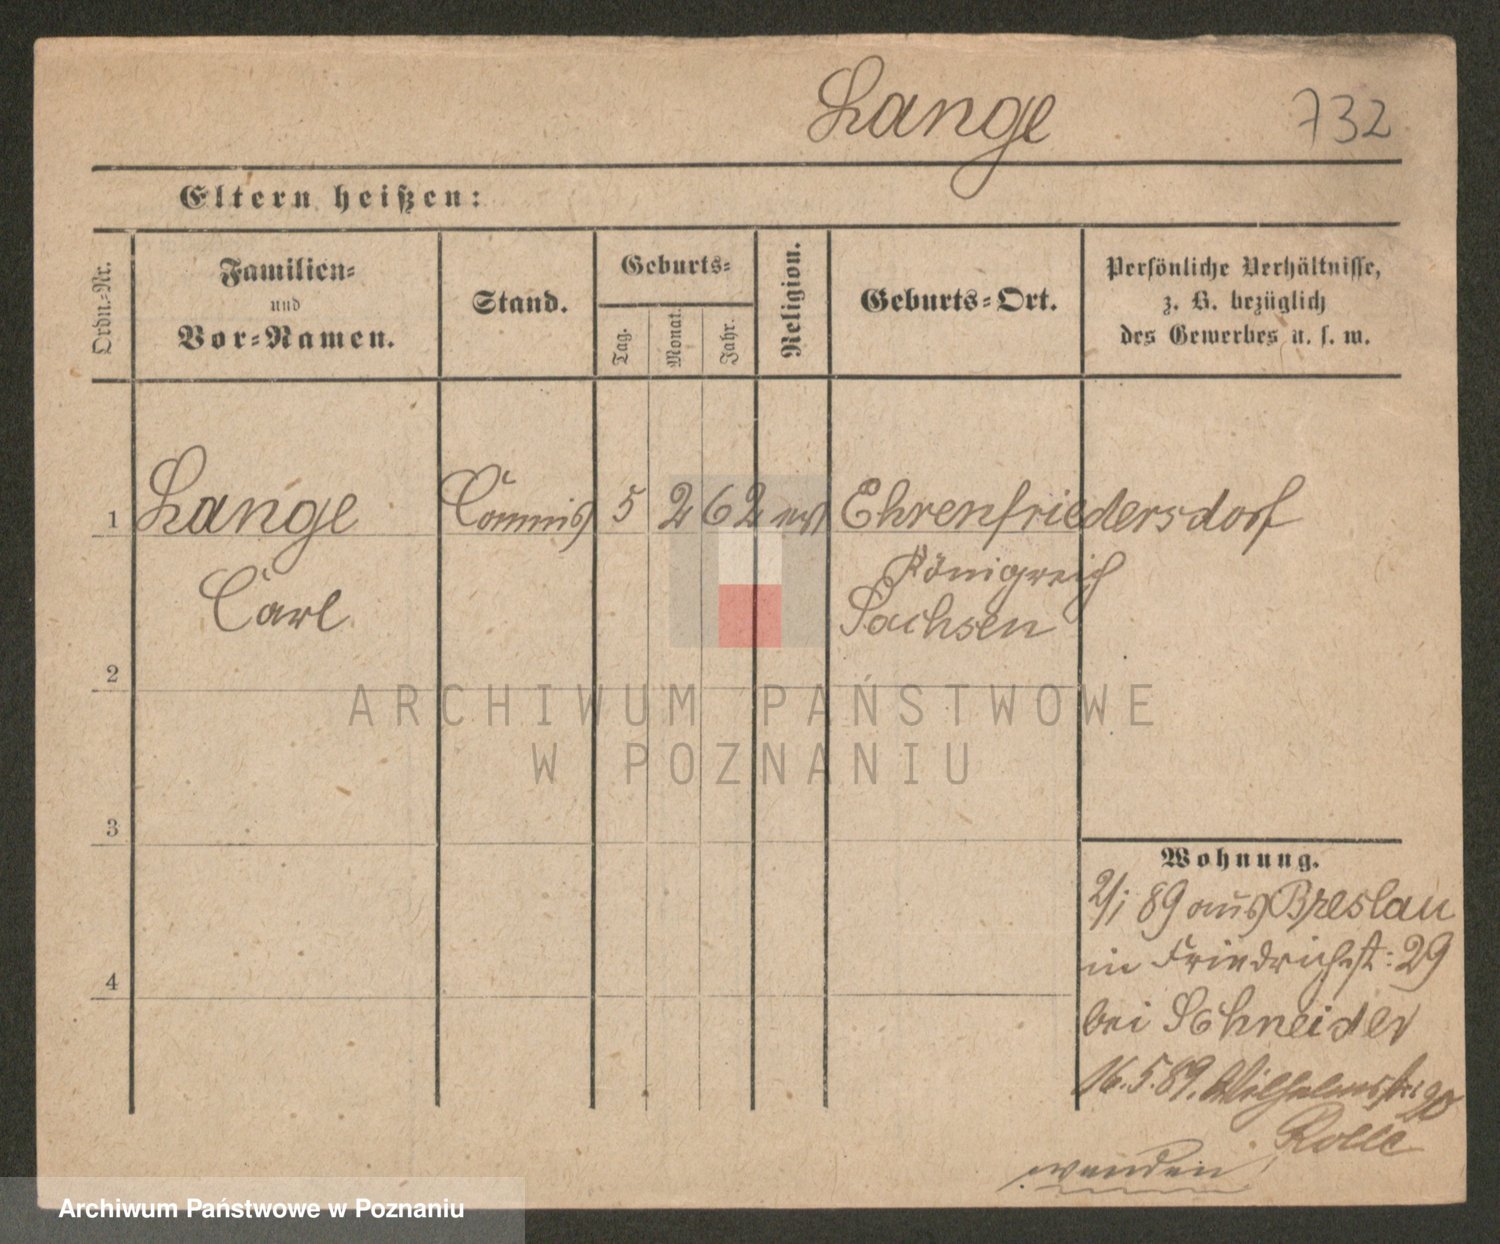 Lange 732
Eltern heißen:
Ordn.-Nr.
Familien-
und
Vor-Namen.
Stand.
Geburts-
Tag.
Monat.
Jahr.
Religion.
Geburts-Ort.
Persönliche Verhältnisse,
z. B. bezüglich
des Gewerbes u. s. w.
1 Lange Commis 5 2 62 ev Ehrenfriedersdorf
Königreich
Carl Sachsen
2
3
4
Wohnung.
2/1 89 aus Breslau
in Friedrichst: 29
bei Schneider
16.5.89. Wilhelmstr: 20
Rolle
wenden!
ARCHIWUM PAŃSTWOWE
W POZNANIU
Archiwum Państwowe w Poznaniu